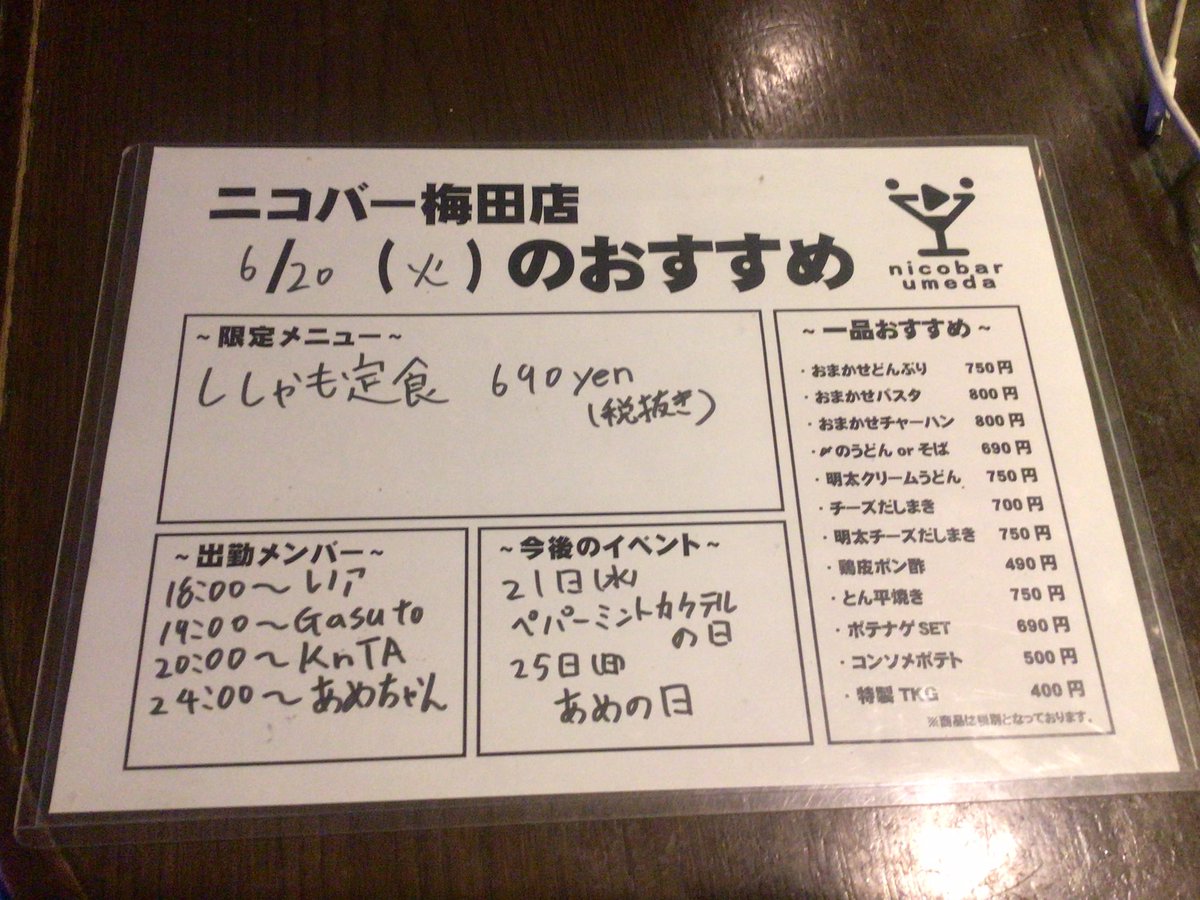 ニコバー梅田店
6/20 (火) のおすすめ
nicobar
umeda
~限定メニュー~
ししゃも定食 690yen
(税抜き)
~出勤メンバー~
18:00〜レノア
19:00〜Gasuto
20:00〜KnTA
24:00〜あめちゃん
~今後のイベント~
21日(水)
ペパーミントカクテル
の日
25日(日)
あめの日
~一品おすすめ~
・おまかせどんぶり 750円
・おまかせパスタ 800円
・おまかせチャーハン 800円
のうどん or そば 690円
・明太クリームうどん 750円
・チーズだしまき 700円
・明太チーズだしまき 750円
・鶏皮ポン酢 490円
・とん平焼き 750円
・ポテナゲSET 690円
・コンソメポテト 500円
・特製TKG 400円
※商品は税別となっております。